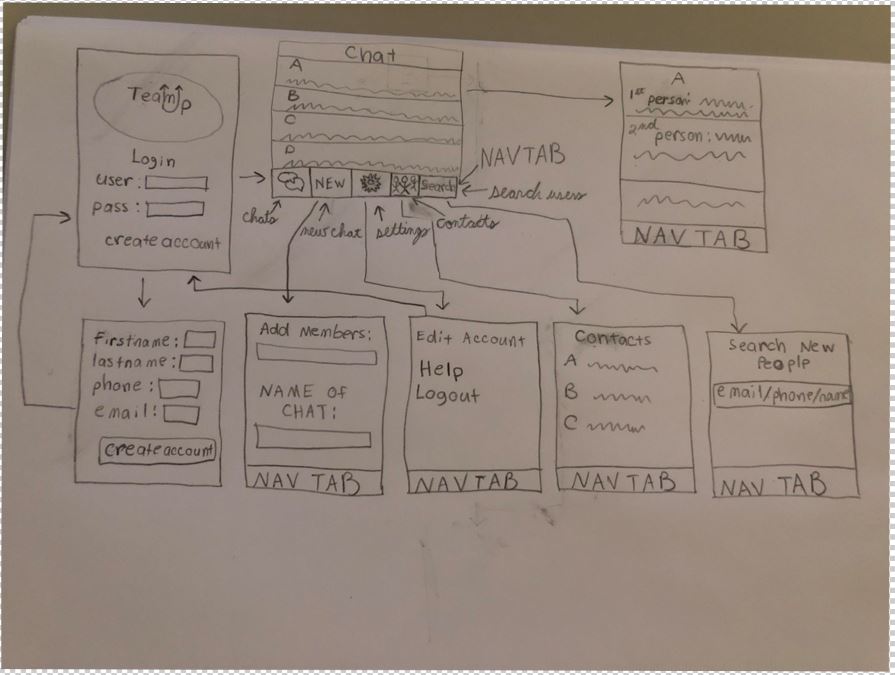 TeamUp
Login
user:
pass:
create account
Chat
A
B
C
D
NEW
Search
NAV TAB
search users
chats
new chat
settings
contacts
A
1st person:
2nd person:
NAV TAB
firstname:
lastname:
phone:
email:
create account
Add Members:
NAME OF
CHAT:
NAV TAB
Edit Account
Help
Logout
NAV TAB
Contacts
A
B
C
NAV TAB
Search New
People
email/phone/name
NAV TAB